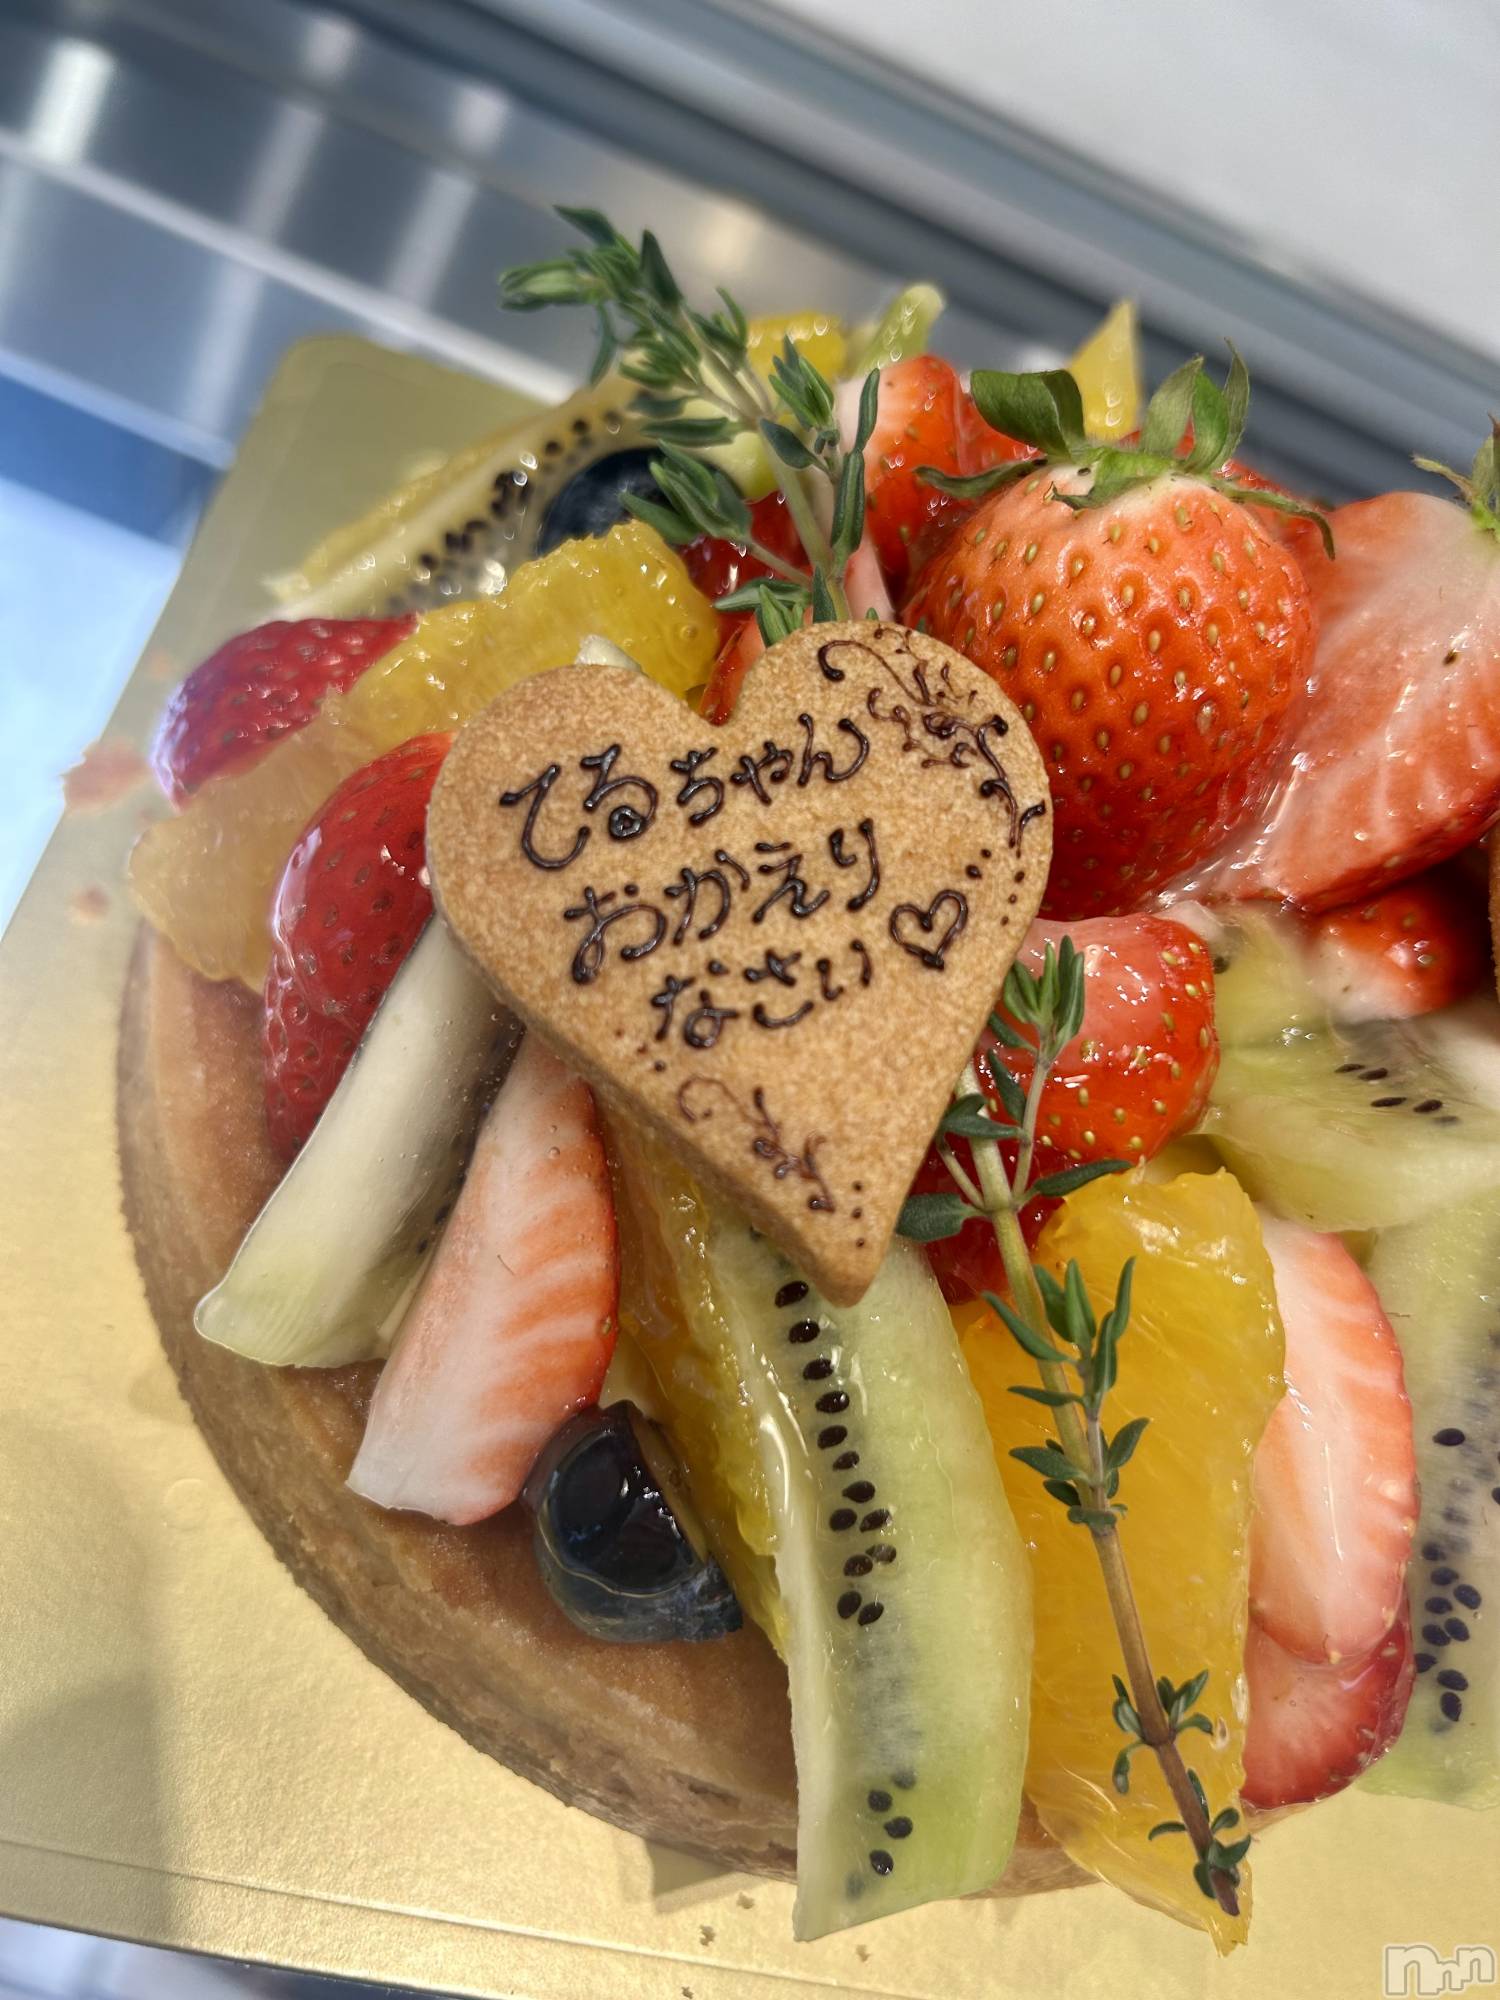 てるちゃん
おかえり
なさい♡
nnn